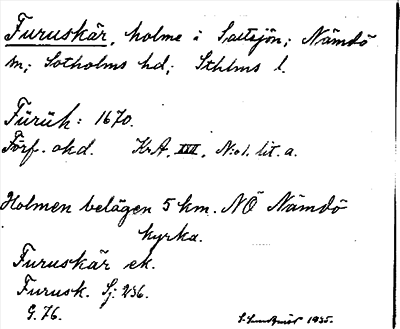 Furuskär, holme i Saltsjön; Nämdö
sn; Sotholms hd; Sthlms l.
Fürük: 1670.
Förf. okd. KrA, XIII, No 1. lit. a.
Holmen belägen 5 km. NÖ Nämdö
kyrka.
Furuskär ek.
Furusk. Sj: 236.
G. 76.
1935.